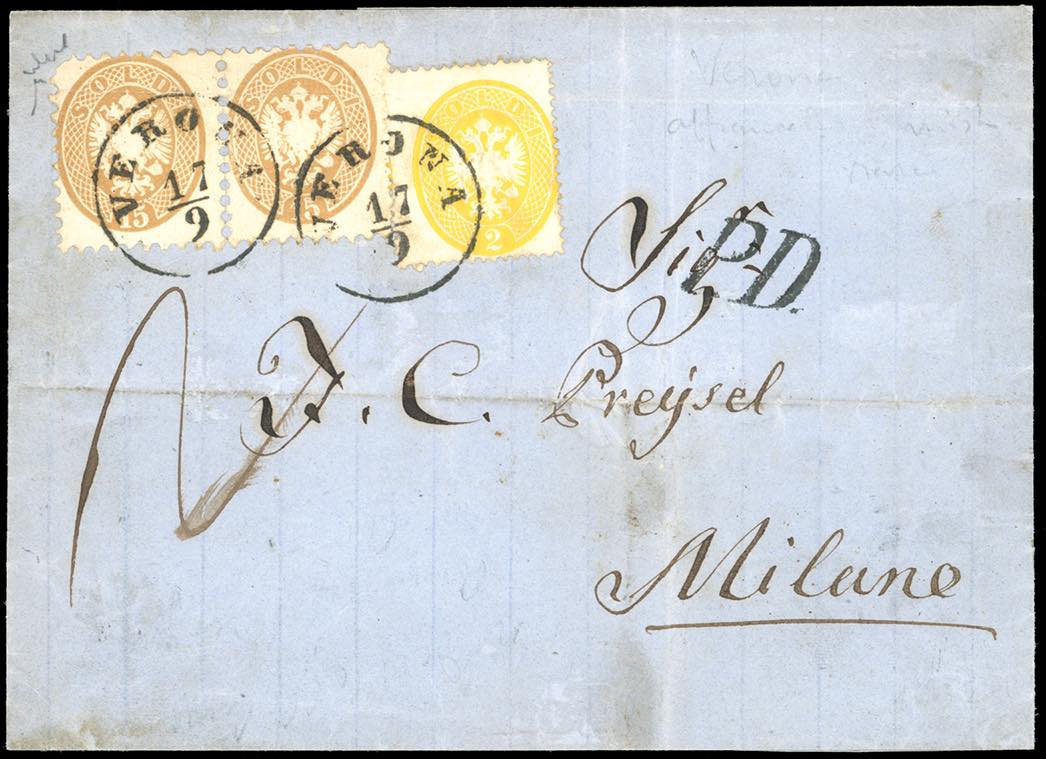 SOLDI SOLDI SOLDI
15 15 2
VERONA VERONA
17/9 17/9
Sig.
P.D.
J. C. Preÿsel
Milano
Verona